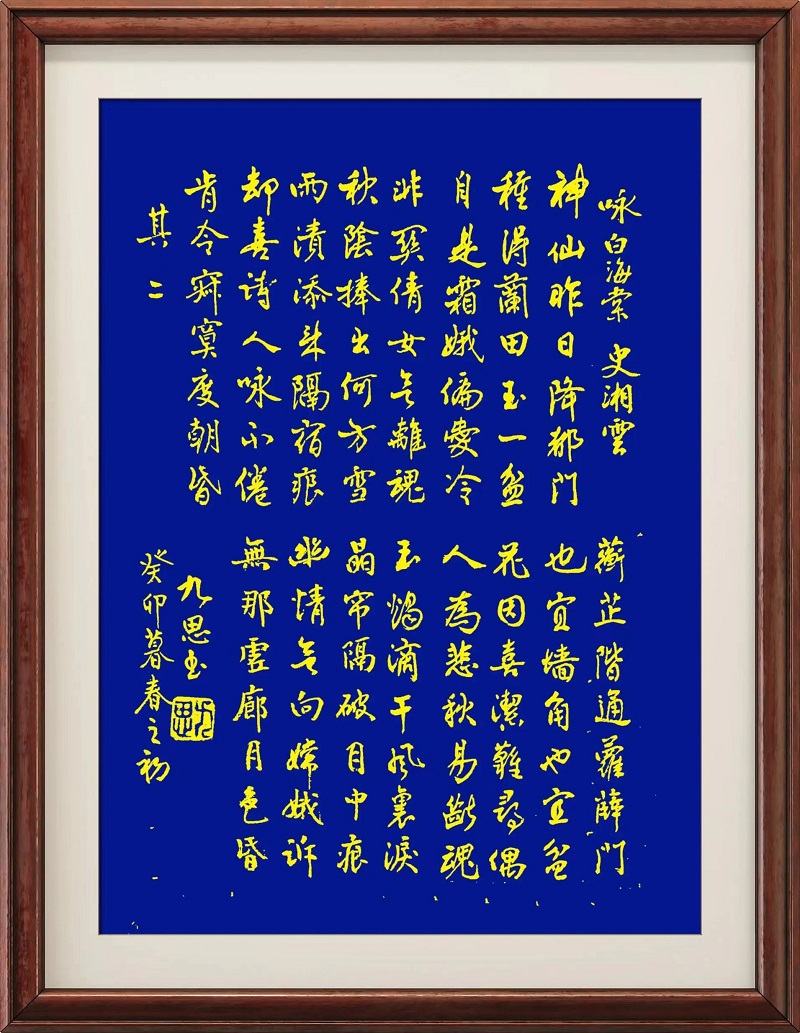 咏白海棠 史湘雲
神仙昨日降都門
種得蘭田玉一盆
自是霜娥偏愛冷
非関倩女无離魂
秋陰捧出何方雪
雨漬添来隔宿痕
却喜詩人咏不倦
肯令寂寞度朝昏
其二
蘅芷階通蘿薜門
也宜墻角也宜盆
花因喜潔難尋偶
人為悲秋易斷魂
玉燭滴干風裏淚
晶帘隔破月中痕
幽情无向嫦娥訴
無那虛廊月色昏
九思書
癸卯暮春之初